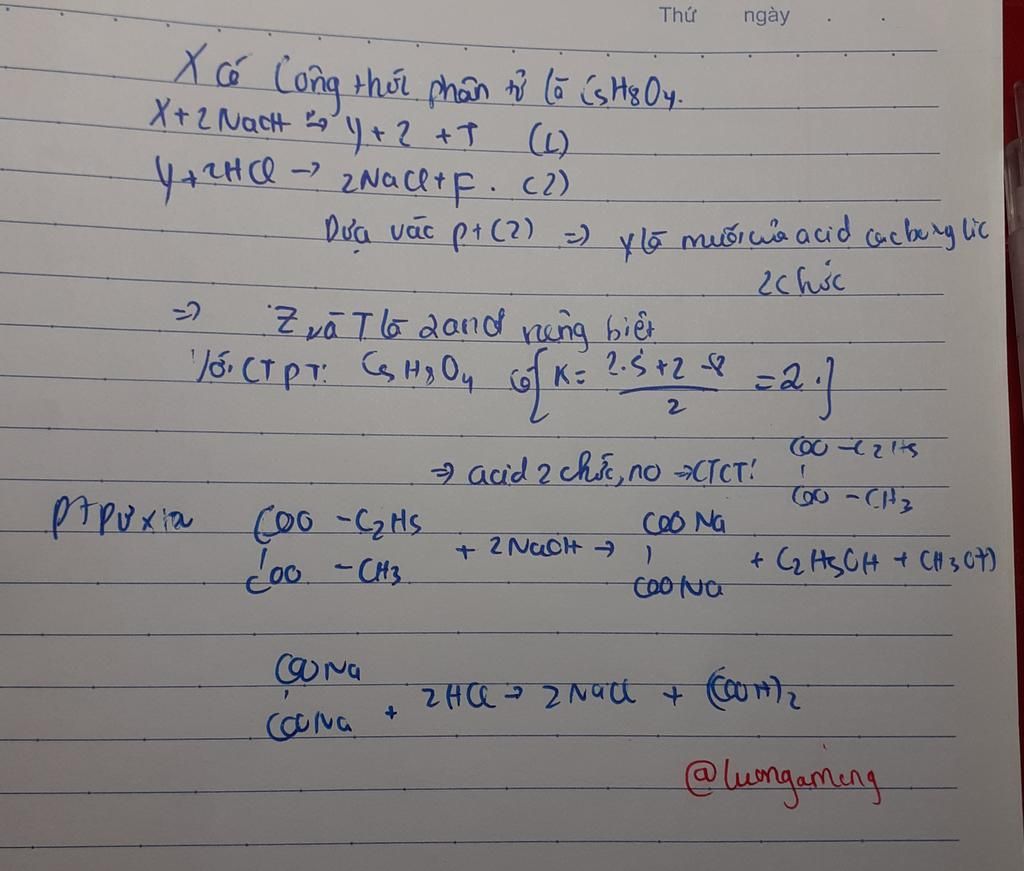 Thứ ngày . .
X có Công thức phân tử là C5H8O4.
X + 2NaOH → Y + Z + T (1)
Y + 2HCl → 2NaCl + F. (2)
Dựa vào pt (2) => Y là muối của acid cacboxylic
2 chức
=> Z và T là 2 ancol riêng biệt
Với CTPT: C5H8O4 có [K = (2.5+2-8)/2 = 2.]
=> acid 2 chức, no → CTCT: COO-C2H5
COO-CH3
Ptpứ xra COO-C2H5 + 2NaOH → COONa + C2H5OH + CH3OH
COO-CH3 COONa
COONa
COONa + 2HCl → 2NaCl + (COOH)2
@luongameng